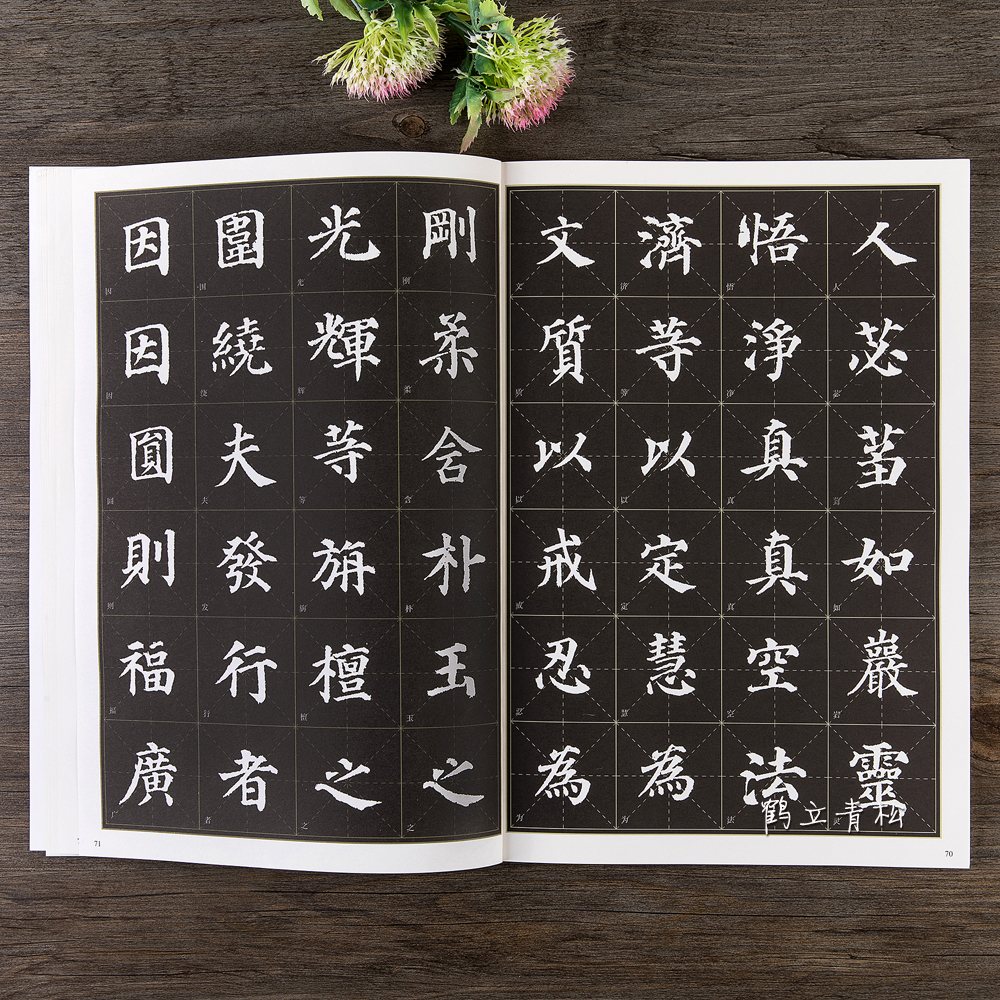 人苾蒭如巖靈
悟淨真真空法
濟等以定慧為
文質以戒忍為
70
剛柔含朴玉之
光輝等旃檀之
圍繞夫發行者
因因圓則福廣
71
鹤立青松